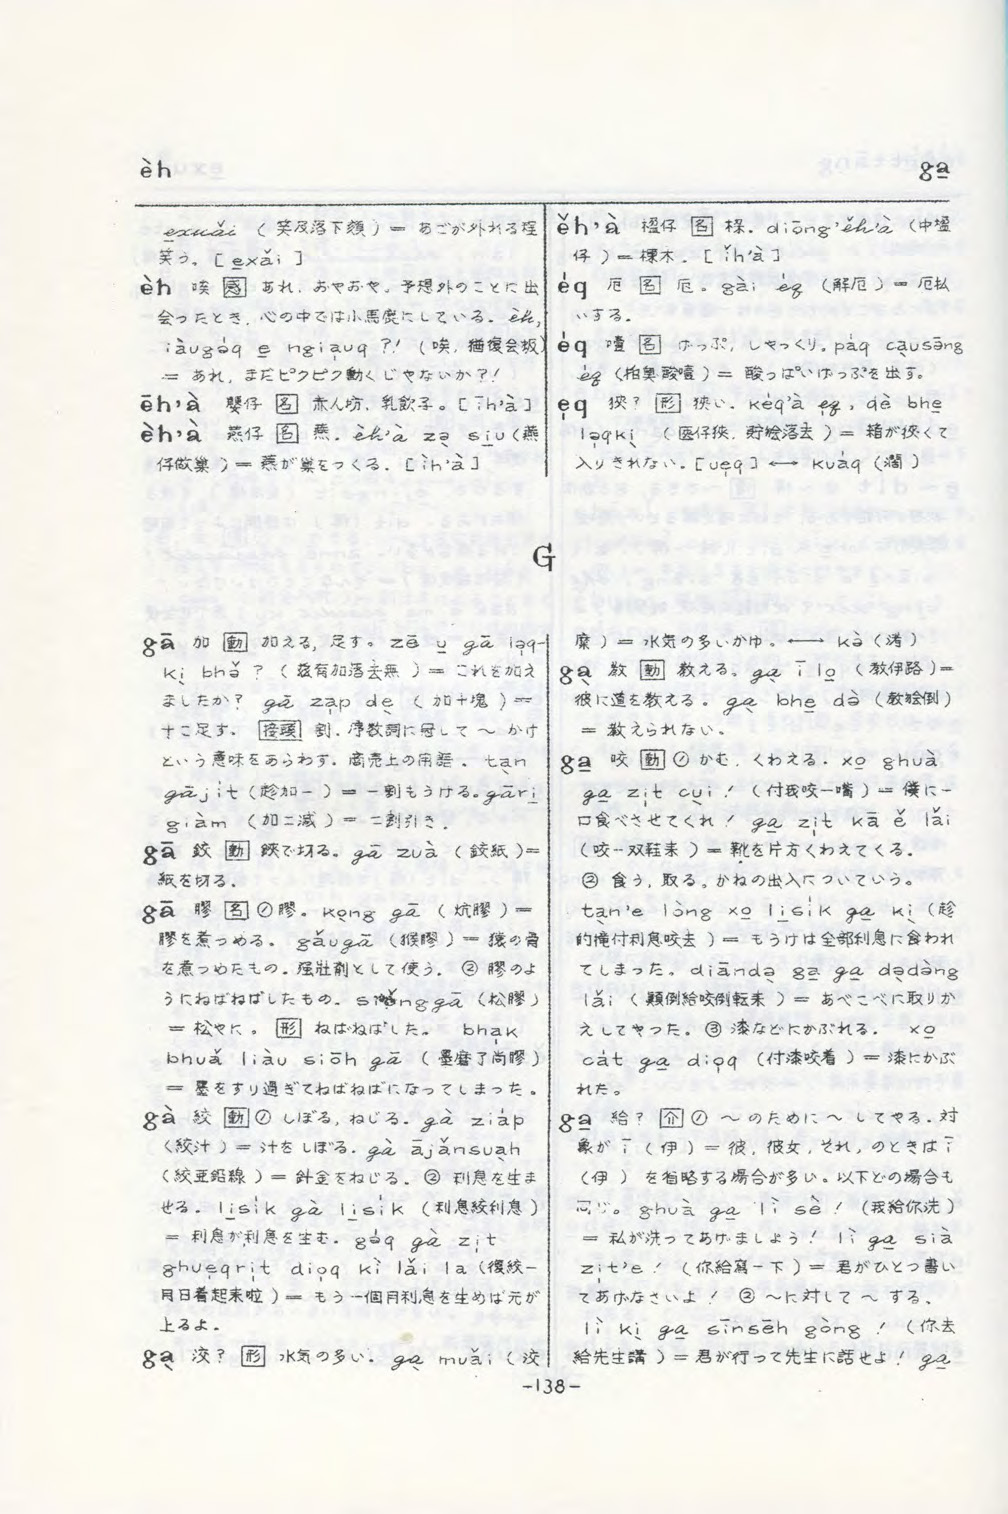 èh
ga̱
exuǎi ( 笑及落下頦 ) = あごが外れる程
笑う。[ e̱xǎi ]
èh 唉 感 あれ. おやおや。予想外のことに出
会ったとき, 心の中では小馬鹿にしている. èh,
iàugə̍q e̱ ngia̍uq ?! ( 唉, 猶復会板)
= あれ, まだピクピク動くじゃないか?!
ēh'à 嬰仔 名 赤ん坊. 乳飲子。[ īh'à ]
èh'à 燕仔 名 燕. èh'à zə̖ siu (燕
仔做巣 ) = 燕が巣をつくる. [ ìh'à ]
ěh'à 楹仔 名 梁. diōng'ěh'à (中楹
仔 ) = 棟木. [ ǐh'à ]
éq 厄 名 厄。gài éq (解厄 ) = 厄払
いする.
éq 噎 名 げっぷ, しゃっくり。páq ca̖usāng
éq (拍臭酸噎 ) = 酸っぱいげっぷを出す。
e̍q 狭? 形 狭い. kéq'à e̍q, dè bhe̱
lə̍qki̖ ( 匧仔狭. 貯袂落去 ) = 箱が狭くて
入りきれない. [ ue̍q ] ←→ kuáq (濶 )
G
gā 加 動 加える, 足す。zē u̱ gā lə̍q-
ki̖ bhə̌ ? ( 兹有加落去無 ) = これを加え
ましたか? gā za̍p də̖ ( 加十塊 ) =
十こ足す. 接頭 割. 序数詞に冠して ～ かけ
という意味をあらわす. 商売上の用語. ta̖n
gājít (趁加一 ) = 一割もうける. gāri̱
giàm (加二減 ) = 二割引き.
gā 鉸 動 鋏で切る。gā zuà ( 鉸紙 ) =
紙を切る.
gā 膠 名 ①膠. ko̖ng gā ( 炕膠 ) =
膠を煮つめる。gǎugā (猴膠 ) = 猿の骨
を煮つめたもの. 強壯剤として使う. ② 膠のよ
うにねばねばしたもの. gā (松膠 )
= 松やに。形 ねばねばした。bha̍k
bhuǎ liàu siōh gā ( 墨磨了尚膠 )
= 墨をすり過ぎてねばねばになってしまった。
gà 絞 動 ① しぼる, ねじる. gà ziáp
(絞汁 ) = 汁をしぼる. gà ājǎnsua̖h
(絞亜鉛線 ) = 針金をねじる. ② 利息を生ま
せる. li̱sík gà li̱sík ( 利息絞利息 )
= 利息が利息を生む. gə́q gà zi̍t
ghue̍qri̍t dio̍q kì lǎi la (復絞一
月日着起来啦 ) = もう一個月利息を生めば元が
上るよ.
ga̖ 洨? 形 水気の多い. ga̖ muǎi ( 洨
糜 ) = 水気の多いかゆ. ←→ kə̀ ( 洘 )
ga̖ 教 動 教える. ga̖ ī lo̱ ( 教伊路 )=
彼に道を教える. ga̖ bhe̱ də̀ (教袂倒)
= 教えられない.
ga̱ 咬 動 ① かむ. くわえる. xo̱ ghuà
ga̱ zi̍t cu̖i ! ( 付我咬一嘴 ) = 僕に一
口食べさせてくれ ! ga̱ zi̍t kā ě lǎi
(咬一双鞋来 ) = 靴を片方くわえてくる.
② 食う, 取る。かねの出入についていう。
ta̖n'e lòng xo̱ li̱sík ga̱ ki̖ (趁
的攏付利息咬去 ) = もうけは全部利息に食われ
てしまった。diāndə̖ ga̱ ga̱ də̖dàng
lǎi ( 顛倒給咬倒転来 ) = あべこべに取りか
えしてやった。③ 漆などにかぶれる. xo̱
cát ga̱ dio̍q (付漆咬着 ) = 漆にかぶ
れた。
ga̱ 給? 介 ① ～ のために ～ してやる. 対
象が ī ( 伊 ) = 彼, 彼女, それ, のときは ī
(伊 ) を省略する場合が多い. 以下どの場合も
同じ。ghuà ga̱ lì sè ! (我給你洗 )
= 私が洗ってあげましょう ! lì ga̱ sià
zi̍t'e ! (你給寫一下 ) = 君がひとつ書い
てあげなさいよ ! ② ～に対して ～ する。
lì ki̖ ga̱ sīnsēh gòng ! ( 你去
給先生講 ) = 君が行って先生に話せよ ! ga̱
-138-